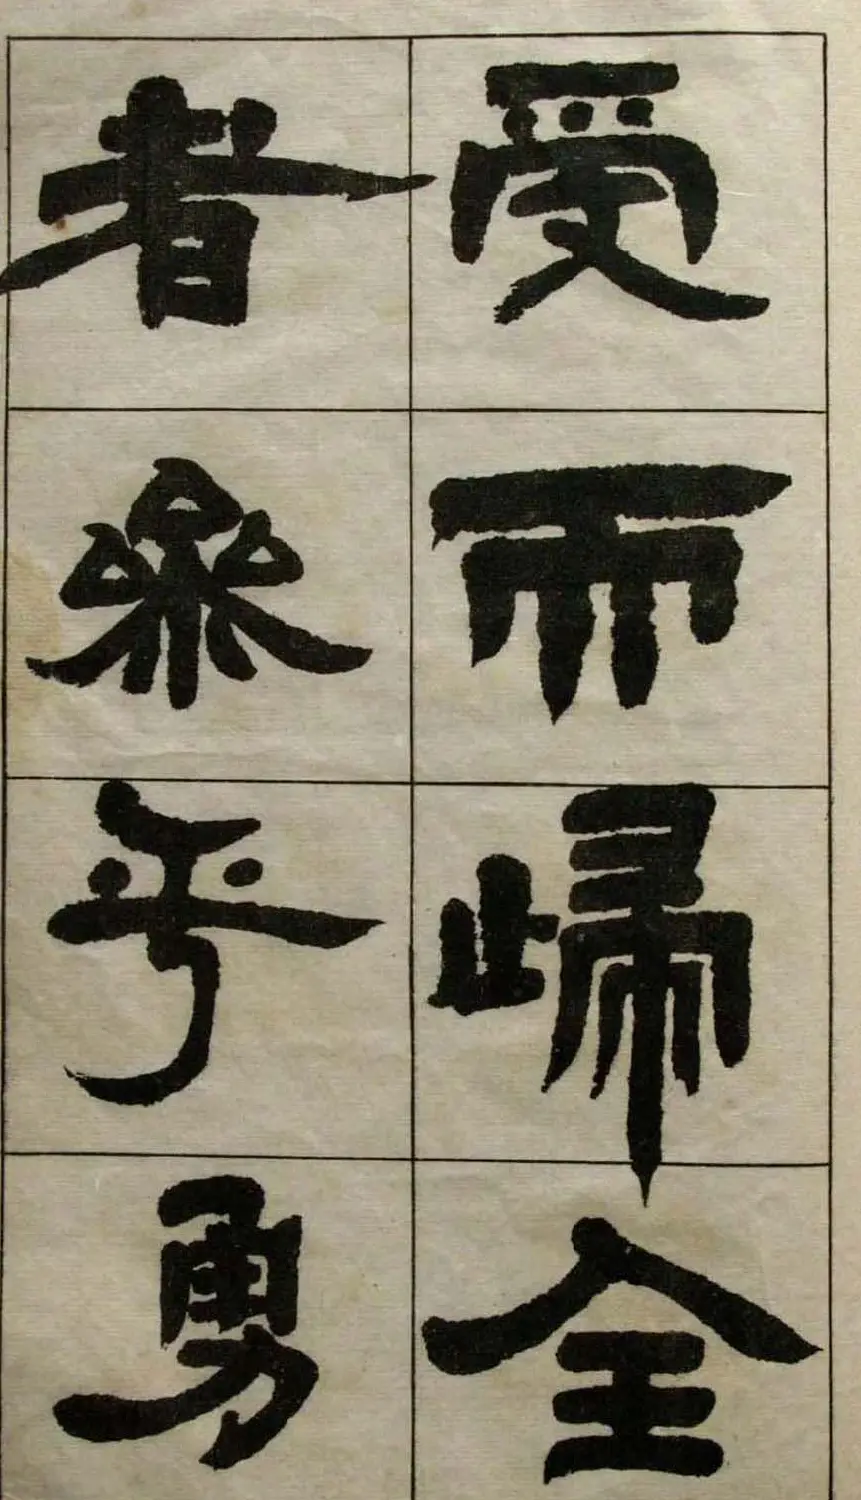 受而歸全
者參乎勇